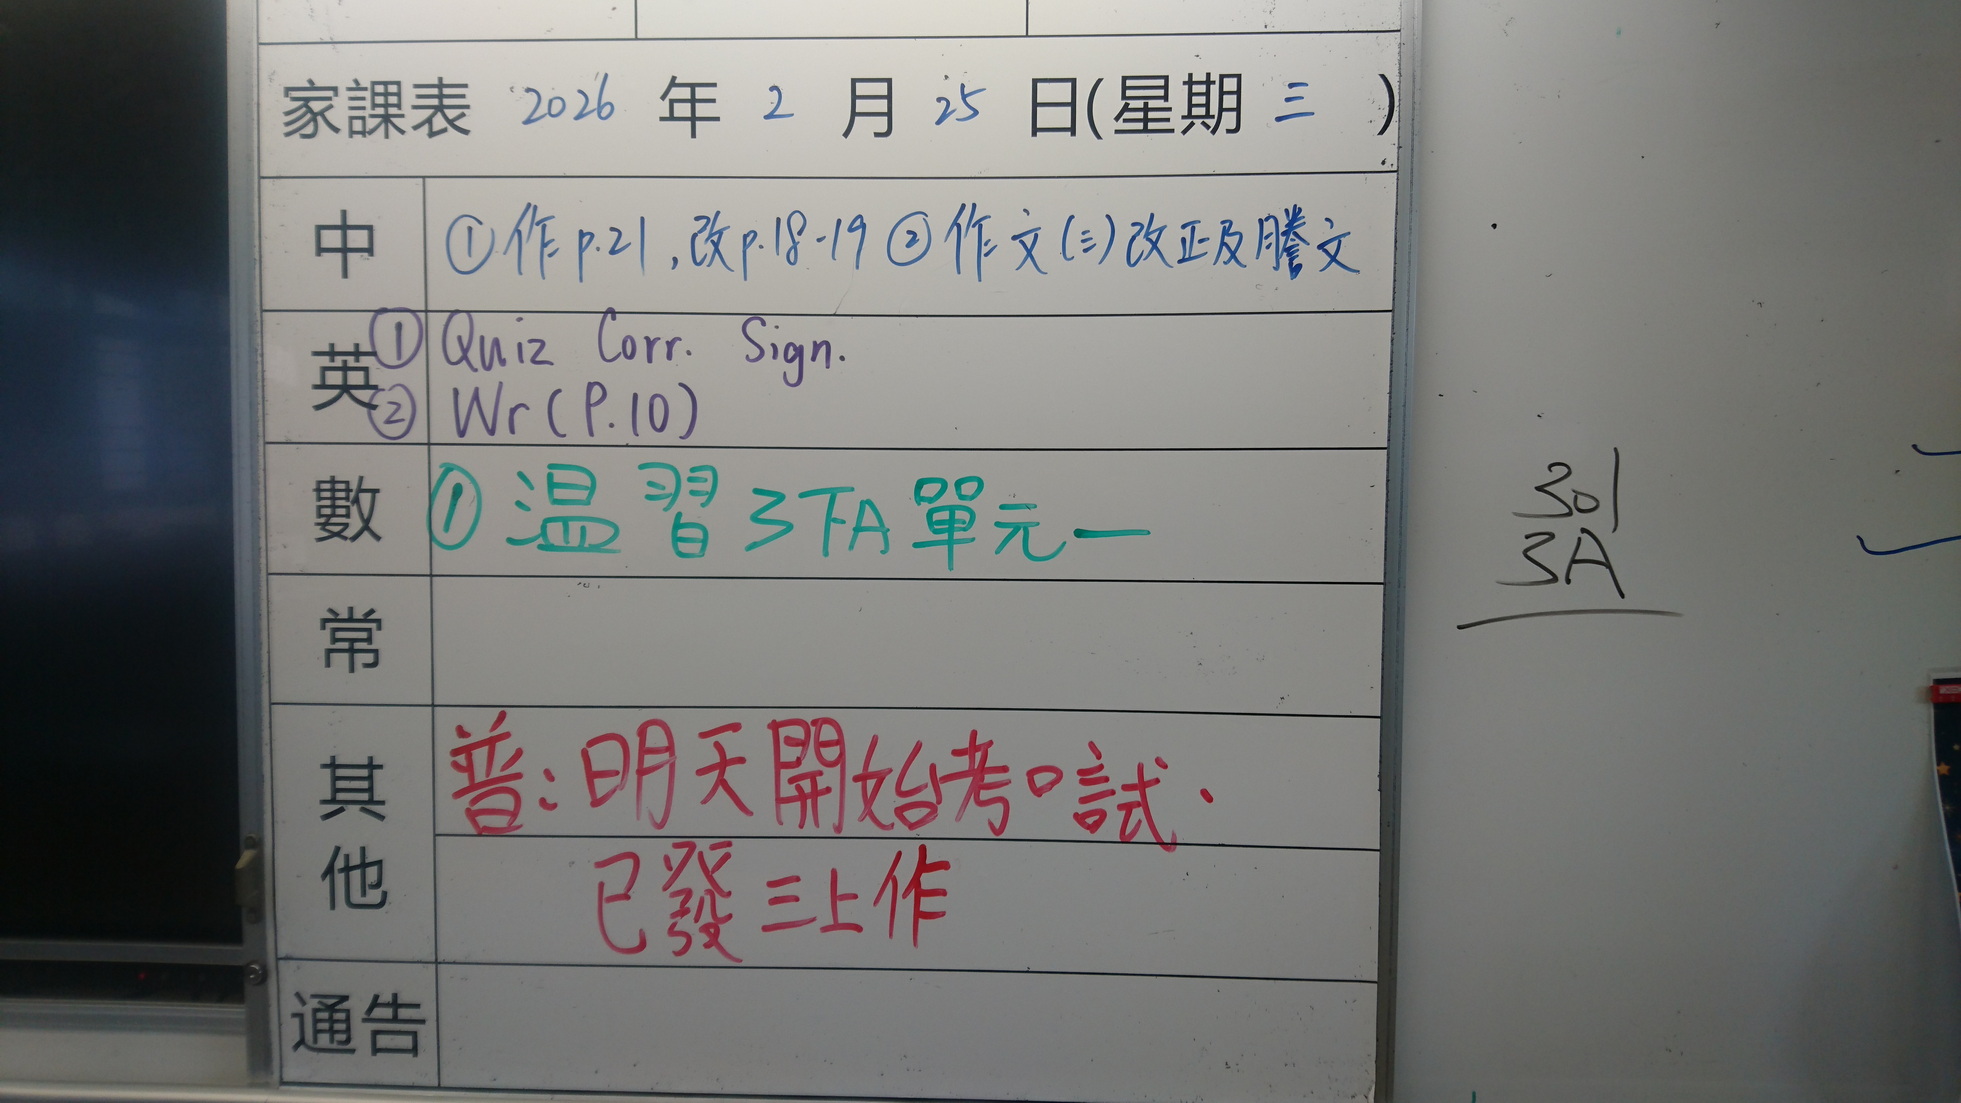 家課表 2026 年 2 月 25 日(星期 三 )
中 ①作p.21,改p.18-19 ②作文(三)改正及謄文
英 ① Quiz Corr. Sign.
② Wr(P.10)
數 ①温習3下A單元一
常
其他 普:明天開始考口試.
已發三上作
通告
301
3A